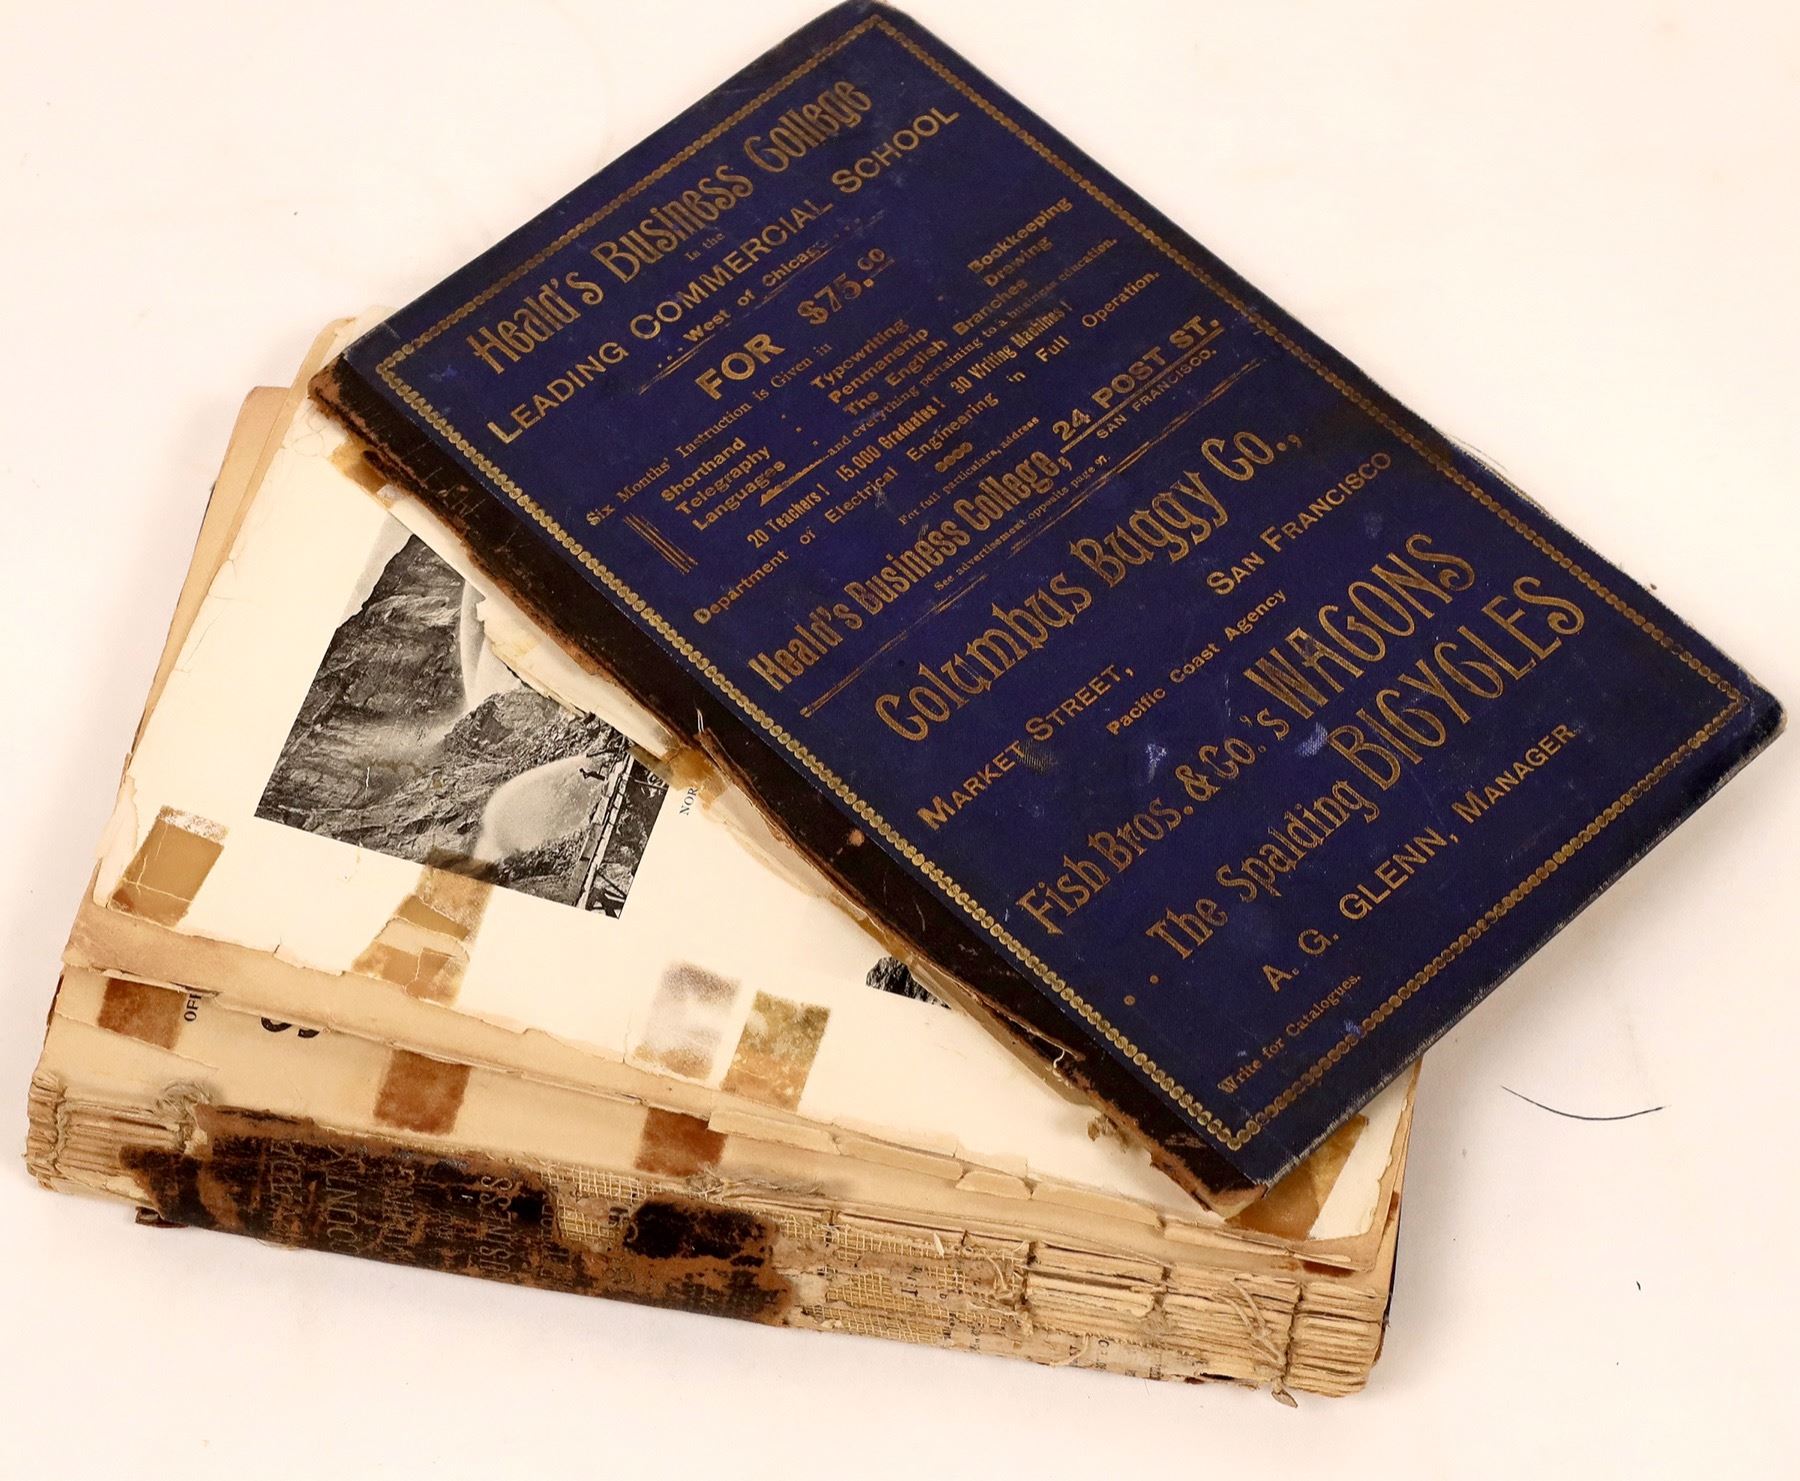 Heald's Business College
Is the
LEADING COMMERCIAL SCHOOL
... West of Chicago ...
FOR $75.00
Six Months' Instruction is Given in
Shorthand . Typewriting . Bookkeeping
Telegraphy . Penmanship . Drawing
Languages . The English Branches
and everything pertaining to a business education.
20 Teachers! 15,000 Graduates! 30 Writing Machines!
Department of Electrical Engineering in Full Operation.
For full particulars, address
Heald's Business College, 24 POST ST.
SAN FRANCISCO.
See advertisement opposite page 97.
Columbus Buggy Co.,
MARKET STREET, SAN FRANCISCO
Pacific Coast Agency
Fish Bros. & Co.'s WAGONS
. . The Spalding BICYCLES
A. G. GLENN, MANAGER
Write for Catalogues.
NOR
OFF
COUNTY